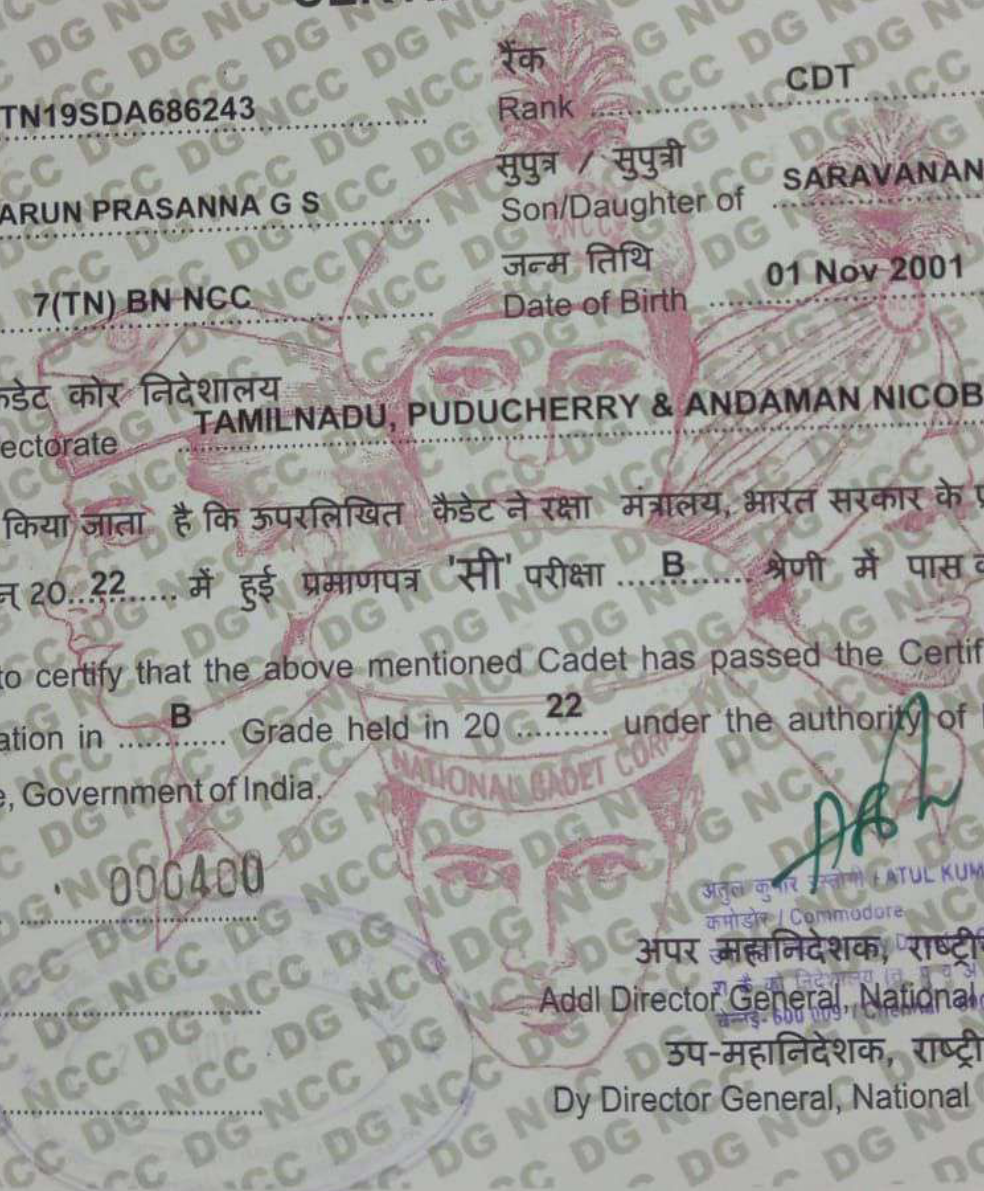 रैंक
TN19SDA686243 Rank CDT
सुपुत्र / सुपुत्री
ARUN PRASANNA G S Son/Daughter of SARAVANAN
जन्म तिथि
7(TN) BN NCC Date of Birth 01 Nov 2001
कोर निदेशालय
ectorate TAMILNADU, PUDUCHERRY & ANDAMAN NICOB
किया जाता है कि ऊपरलिखित कैडेट ने रक्षा मंत्रालय, भारत सरकार के
20 22 में हुई प्रमाणपत्र 'सी' परीक्षा B श्रेणी में पास
to certify that the above mentioned Cadet has passed the Certif
ation in B Grade held in 20 22 under the authority of
e, Government of India.
NATIONAL CADET CORPS
000400
अतुल कुमार / ATUL KUM
कमोडोर / Commodore
अपर महानिदेशक, राष्ट्री
Addl Director General, National
उप-महानिदेशक, राष्ट्री
Dy Director General, National
DG NCC